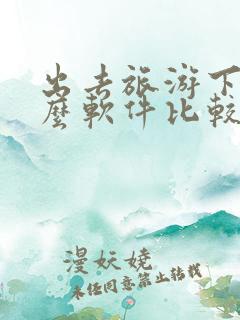 出去旅游下
麼軟件比較
漫妖嬈
未经同意禁止转载